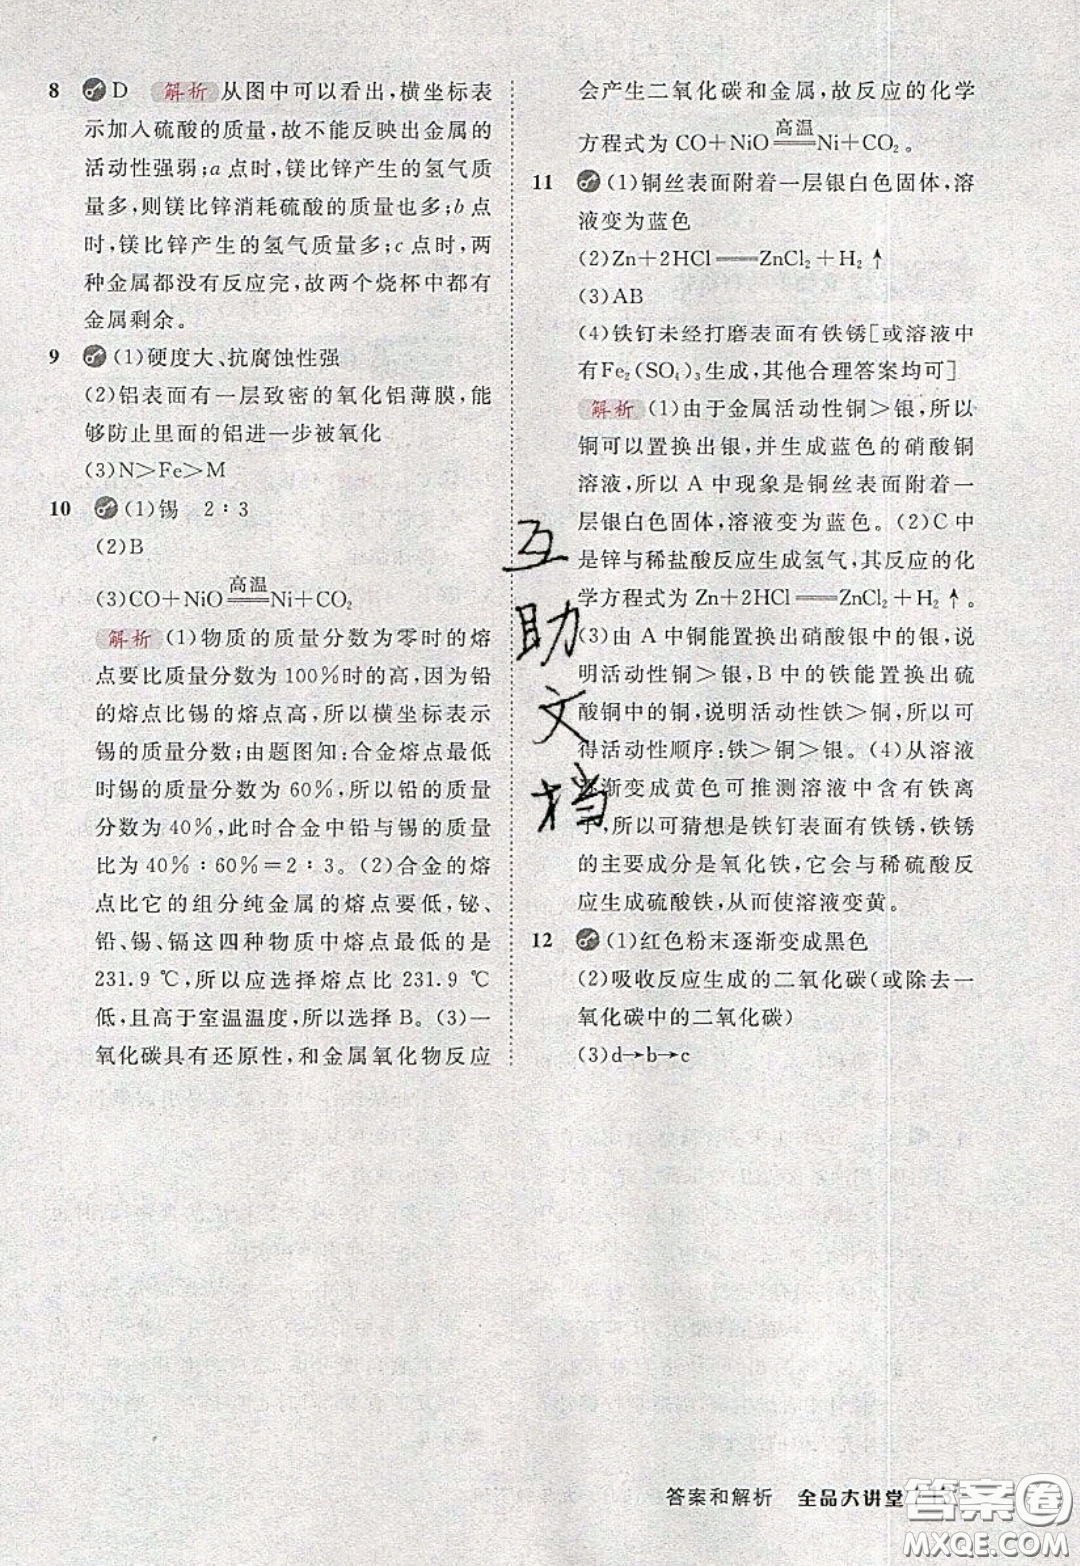 8 D 解析 从图中可以看出,横坐标表
示加入硫酸的质量,故不能反映出金属的
活动性强弱;a 点时,镁比锌产生的氢气质
量多,则镁比锌消耗硫酸的质量也多;b 点
时,镁比锌产生的氢气质量多;c 点时,两
种金属都没有反应完,故两个烧杯中都有
金属剩余。
9 (1)硬度大、抗腐蚀性强
(2)铝表面有一层致密的氧化铝薄膜,能
够防止里面的铝进一步被氧化
(3)N>Fe>M
10 (1)锡 2∶3
(2)B
(3)CO+NiO 高温═ Ni+CO₂
解析 (1)物质的质量分数为零时的熔
点要比质量分数为100%时的高,因为铅
的熔点比锡的熔点高,所以横坐标表示
锡的质量分数;由题图知:合金熔点最低
时锡的质量分数为60%,所以铅的质量
分数为40%,此时合金中铅与锡的质量
比为40%∶60%=2∶3。(2)合金的熔
点比它的组分纯金属的熔点要低,铋、
铅、锡、镉这四种物质中熔点最低的是
231.9 ℃,所以应选择熔点比231.9 ℃
低,且高于室温温度,所以选择B。(3)一
氧化碳具有还原性,和金属氧化物反应
会产生二氧化碳和金属,故反应的化学
方程式为CO+NiO 高温═ Ni+CO₂。
11 (1)铜丝表面附着一层银白色固体,溶
液变为蓝色
(2)Zn+2HCl═ZnCl₂+H₂↑
(3)AB
(4)铁钉未经打磨表面有铁锈[或溶液中
有Fe₂(SO₄)₃生成,其他合理答案均可]
解析 (1)由于金属活动性铜>银,所以
铜可以置换出银,并生成蓝色的硝酸铜
溶液,所以A中现象是铜丝表面附着一
层银白色固体,溶液变为蓝色。(2)C中
是锌与稀盐酸反应生成氢气,其反应的化
学方程式为Zn+2HCl═ZnCl₂+H₂↑。
(3)由A中铜能置换出硝酸银中的银,说
明活动性铜>银,B中的铁能置换出硫
酸铜中的铜,说明活动性铁>铜,所以可
得活动性顺序:铁>铜>银。(4)从溶液
渐变成黄色可推测溶液中含有铁离
子,所以可猜想是铁钉表面有铁锈,铁锈
的主要成分是氧化铁,它会与稀硫酸反
应生成硫酸铁,从而使溶液变黄。
12 (1)红色粉末逐渐变成黑色
(2)吸收反应生成的二氧化碳(或除去一
氧化碳中的二氧化碳)
(3)d→b→c
互
助
文
档
答案和解析 全品大讲堂
答案圈
MXQE.COM